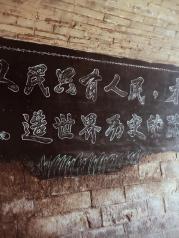 人民只有人民,才
造世界历史的